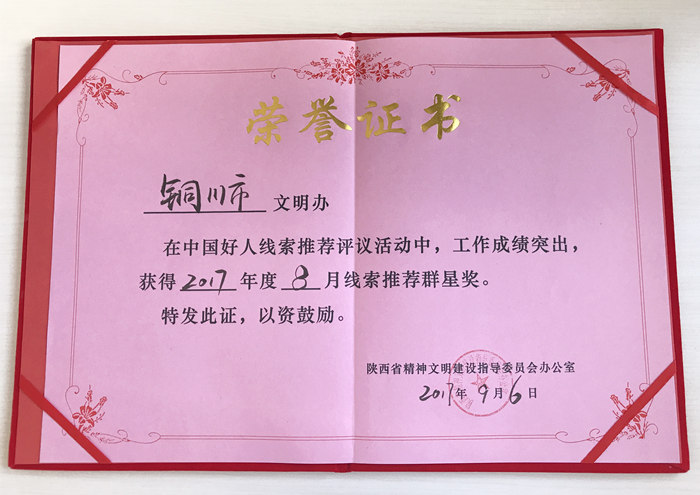 荣誉证书
铜川市 文明办
在中国好人线索推荐评议活动中，工作成绩突出，
获得 2017 年度 8 月线索推荐群星奖。
特发此证，以资鼓励。
陕西省精神文明建设指导委员会办公室
2017年 9月 6日